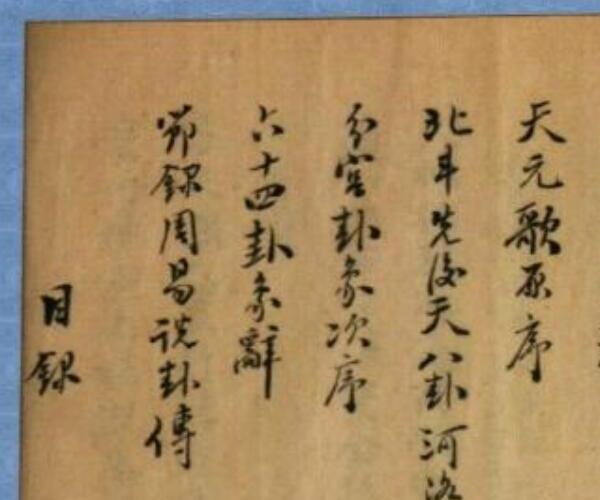 天元歌原序
北斗先後天八卦河洛
分宮卦象次序
六十四卦象辭
節錄周易說卦傳
目錄